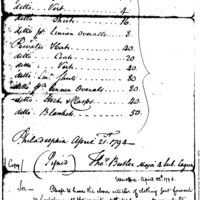 ditto Vest 4.
ditto Shirts 16.
ditto pr Linnen Overalls 8.
Privates Hats 40.
ditto Coats 20.
ditto Vest 40.
ditto Lin: Shirts 80.
ditto pr Linnen Overalls 80.
ditto Stocks & Clasps 40.
ditto Blankets 50.
Philadelphia April 21st 1794
Copy (Signed) Thos Butler Major 4 Sub Legion
April 22d 1794.
Sir Please to issue the above articles of clothing